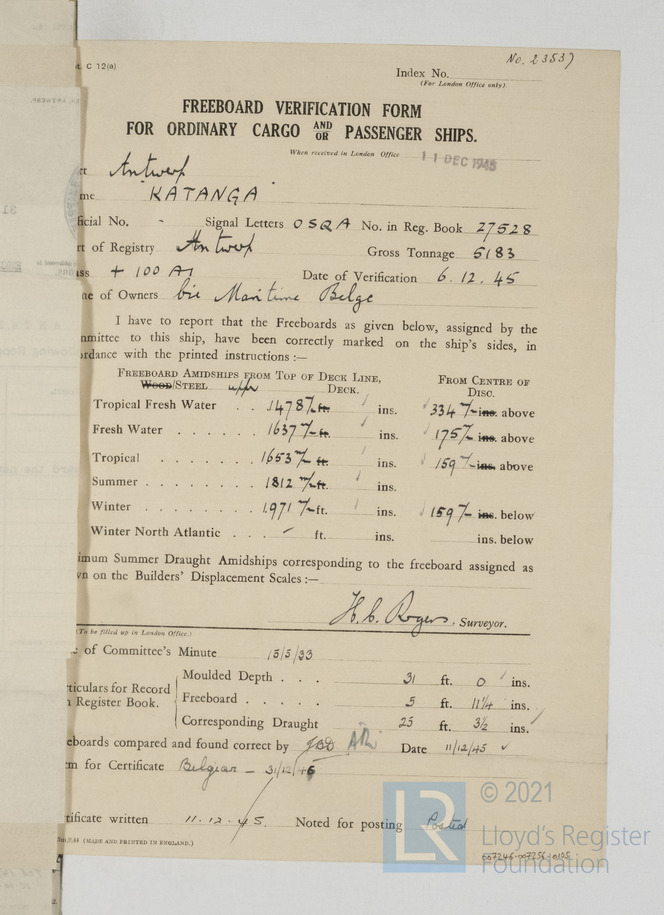 No. 23537
t. C 12(a)
Index No.
(For London Office only).
FREEBOARD VERIFICATION FORM
FOR ORDINARY CARGO AND OR PASSENGER SHIPS.
When received in London Office 11 DEC 1945
rt Antwerp
me KATANGA
ficial No. - Signal Letters OSQA No. in Reg. Book 27528
rt of Registry Antwerp Gross Tonnage 5183
ass + 100 A1 Date of Verification 6.12.45
me of Owners Cie Maritime Belge
I have to report that the Freeboards as given below, assigned by the
mmittee to this ship, have been correctly marked on the ship's sides, in
rdance with the printed instructions :—
FREEBOARD AMIDSHIPS FROM TOP OF DECK LINE, FROM CENTRE OF
WOOD/STEEL upper DECK. DISC.
Tropical Fresh Water . . 1478 ft. ins. 334 ins. above
Fresh Water . . . . . . 1637 ft. ins. 175 ins. above
Tropical . . . . . . . 1653 ft. ins. 159 ins. above
Summer . . . . . . . . 1812 ft. ins.
Winter . . . . . . . . 1971 ft. ins. 159 ins. below
Winter North Atlantic . . . - ft. ins. ins. below
imum Summer Draught Amidships corresponding to the freeboard assigned as
wn on the Builders' Displacement Scales :—
H. C. Rogers, Surveyor.
(To be filled up in London Office.)
e of Committee's Minute 15/5/33
Moulded Depth . . . 31 ft. 0 ins.
rticulars for Record
Register Book.
Freeboard . . . . . 5 ft. 11¼ ins.
Corresponding Draught 25 ft. 3½ ins.
eboards compared and found correct by Date 11/12/45
rm for Certificate Belgian - 31/12/46
rtificate written 11.12.45. Noted for posting Posted
(MADE AND PRINTED IN ENGLAND.)
© 2021
LR
Lloyd's Register
Foundation
007246-007256-0105